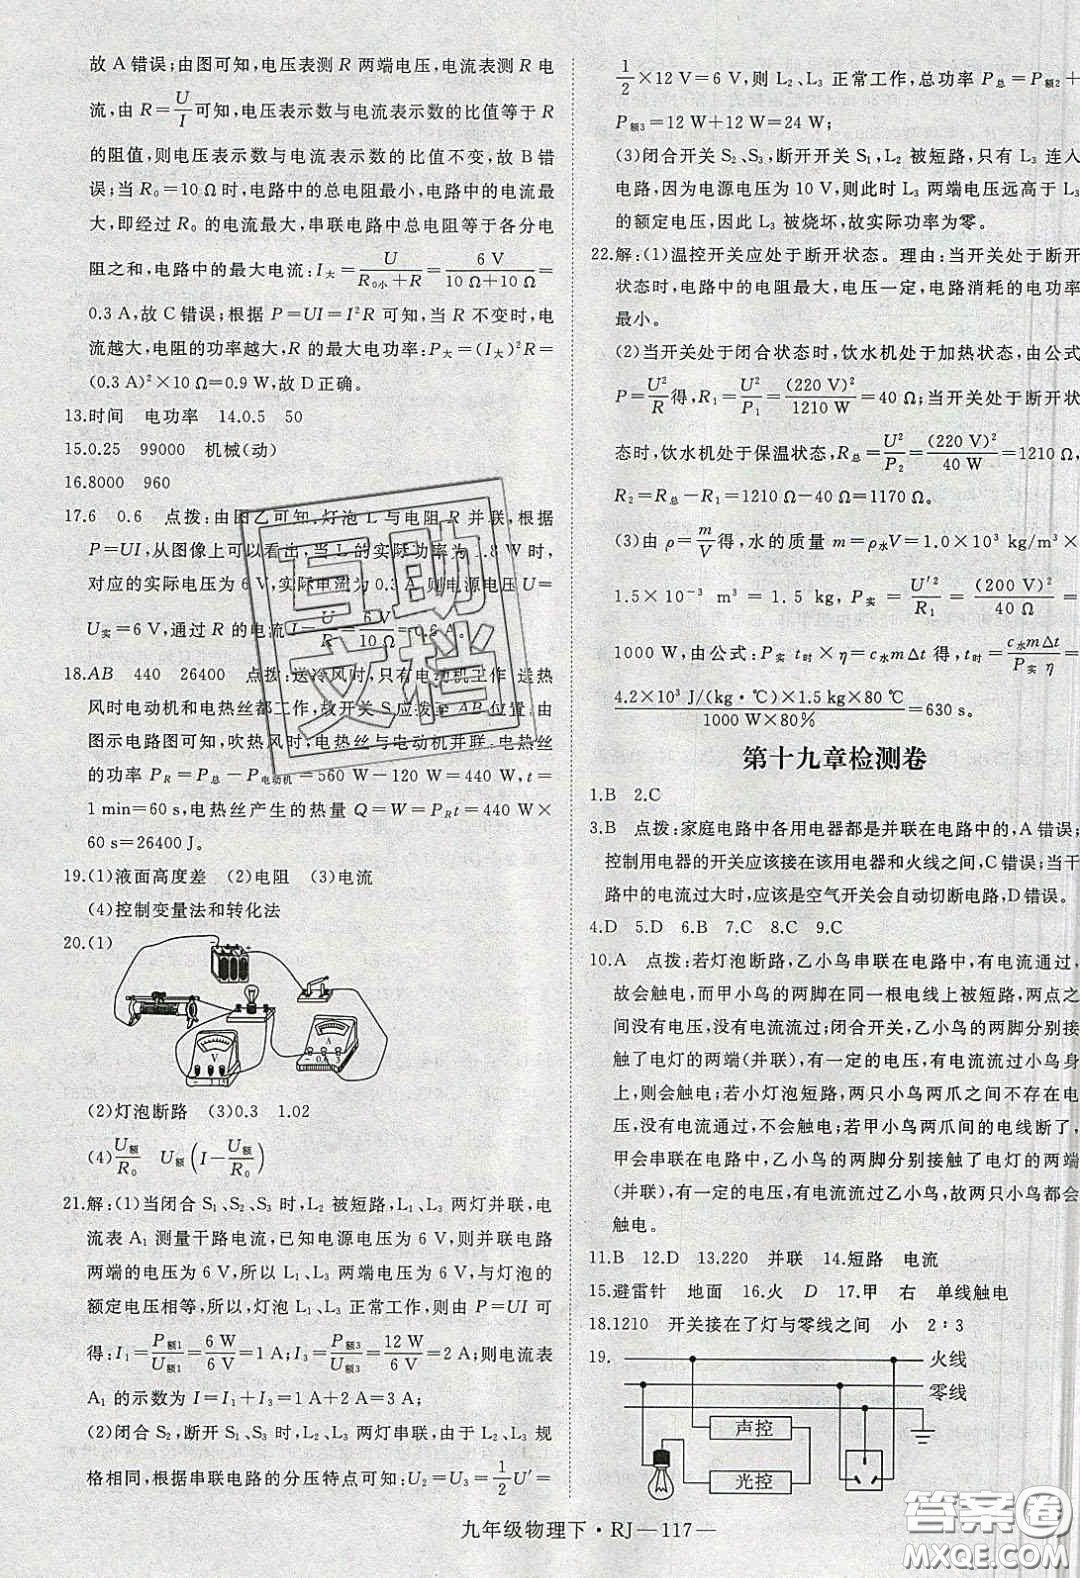 故 A 错误;由图可知,电压表测 R 两端电压,电流表测 R 电
流,由 R=U/I 可知,电压表示数与电流表示数的比值等于 R
的阻值,则电压表示数与电流表示数的比值不变,故 B 错
误;当 R₀=10 Ω 时,电路中的总电阻最小,电路中的电流最
大,即经过 R₀ 的电流最大,串联电路中总电压等于各分电
阻之和,电路中的最大电流:I大=U/(R₀小+R)=6 V/(10 Ω+10 Ω)=
0.3 A,故 C 错误;根据 P=UI=I²R 可知,当 R 不变时,电
流越大,电阻的功率越大,R 的最大电功率:P大=(I大)²R=
(0.3 A)²×10 Ω=0.9 W,故 D 正确。
13.时间 电功率 14.0.5 50
15.0.25 99000 机械(动)
16.8000 960
17.6 0.6 点拨:由图乙可知,灯泡 L 与电阻 R 并联,根据
P=UI,从图像上可以看出,当 L 的实际功率为 1.8 W 时,
对应的实际电压为 6 V,实际电流为 0.3 A,则电源电压 U=
U实=6 V,通过 R 的电流 I=U/R=6 V/10 Ω=0.6 A。
18.AB 440 26400 点拨:送冷风时,只有电动机工作,送热
风时电动机和电热丝都工作,故开关 S 应拨至 AB 位置;由
图示电路图可知,吹热风时,电热丝与电动机并联,电热丝
的功率 P_R=P总-P电动机=560 W-120 W=440 W,t=
1 min=60 s,电热丝产生的热量 Q=W=P_Rt=440 W×
60 s=26400 J。
19.(1)液面高度差 (2)电阻 (3)电流
(4)控制变量法和转化法
20.(1)
V
A
(2)灯泡断路 (3)0.3 1.02
(4)U额/R₀ U额(I-U额/R₀)
21.解:(1)当闭合 S₁、S₂、S₃ 时,L₂ 被短路,L₁、L₃ 两灯并联,电
流表 A₁ 测量干路电流,已知电源电压为 6 V,则并联电路
两端的电压为 6 V,所以 L₁、L₃ 两端的电压为 6 V,与灯的
额定电压相等,所以,灯泡 L₁、L₃ 正常工作,则由 P=UI 可
得:I₁=P额1/U额1=6 W/6 V=1 A;I₃=P额3/U额3=12 W/6 V=2 A;则电流表
A₁ 的示数为 I=I₁+I₃=1 A+2 A=3 A;
(2)闭合 S₂,断开 S₁、S₃ 时,L₂、L₃ 两灯串联,由于 L₂、L₃ 规
格相同,根据串联电路的分压特点可知:U₂=U₃=1/2 U′=
1/2×12 V=6 V,则 L₂、L₃ 正常工作,总功率 P总=P额2+
P额3=12 W+12 W=24 W;
(3)闭合开关 S₂、S₃,断开开关 S₁,L₂ 被短路,只有 L₃ 连入
电路,因为电源电压为 10 V,则此时 L₃ 两端电压远高于 L₃
的额定电压,因此 L₃ 被烧坏,故实际功率为零。
22.解:(1)温控开关应处于断开状态。理由:当开关处于断开
状态时,电路中的电阻最大,电压一定,电路消耗的电功率
最小。
(2)当开关处于闭合状态时,饮水机处于加热状态,由公式
P=U²/R得,R₁=U²/P₁=(220 V)²/1210 W=40 Ω;当开关处于断开状
态时,饮水机处于保温状态,R总=U²/P₂=(220 V)²/40 W=1210 Ω,
R₂=R总-R₁=1210 Ω-40 Ω=1170 Ω。
(3)由 ρ=m/V得,水的质量 m=ρ水V=1.0×10³ kg/m³×
1.5×10⁻³ m³=1.5 kg,P实=U′²/R₁=(200 V)²/40 Ω=
1000 W,由公式:P实 t时×η=c水mΔt 得,t时=c水mΔt/P实 η=
4.2×10³ J/(kg·℃)×1.5 kg×80 ℃/1000 W×80%=630 s。
第十九章检测卷
1.B 2.C
3.B 点拨:家庭电路中各用电器都是并联在电路中的,A 错误;
控制用电器的开关应该接在该用电器和火线之间,C 错误;当
路中的电流过大时,应该是空气开关会自动切断电路,D 错误。
4.D 5.D 6.B 7.C 8.C 9.C
10.A 点拨:若灯泡断路,乙小鸟串联在电路中,有电流通过,
故会触电,而甲小鸟的两脚在同一根电线上被短路,两点之
间没有电压,没有电流流过;闭合开关,乙小鸟的两脚分别接
触了电灯的两端(并联),有一定的电压,有电流流过小鸟身
上,则会触电;若小灯泡短路,两只小鸟两爪之间不存在电
压,没有电流通过,不会触电;若甲小鸟两爪间的电线断了,
甲会串联在电路中,乙小鸟的两脚分别接触了电灯的两端
(并联),有一定的电压,有电流流过乙小鸟,故两只小鸟都会
触电。
11.B 12.D 13.220 并联 14.短路 电流
15.避雷针 地面 16.火 D 17.甲 右 单线触电
18.1210 开关接在了灯与零线之间 小 2∶3
19.
火线
零线
声控
光控
九年级物理下·RJ—117—
互助文档
答案圈
MXQE.COM